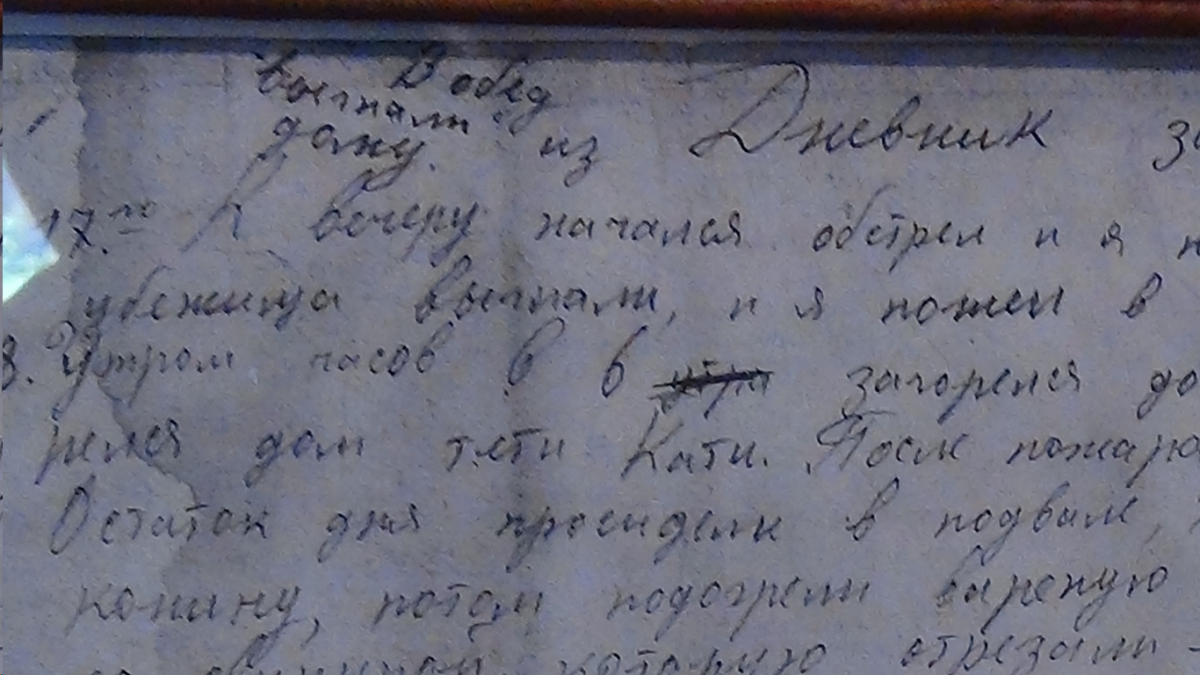 В обед
выгнали
дому. из Дневник
17.го К вечеру начался обстрел и я
убежища выгнали, и я пошел в
8. Утром часов в 6 утра загорелся
релся дом тети Кати. После пожара
Остаток дня просидели в подвале,
конину, потом подогрели вареную
которую отрезали